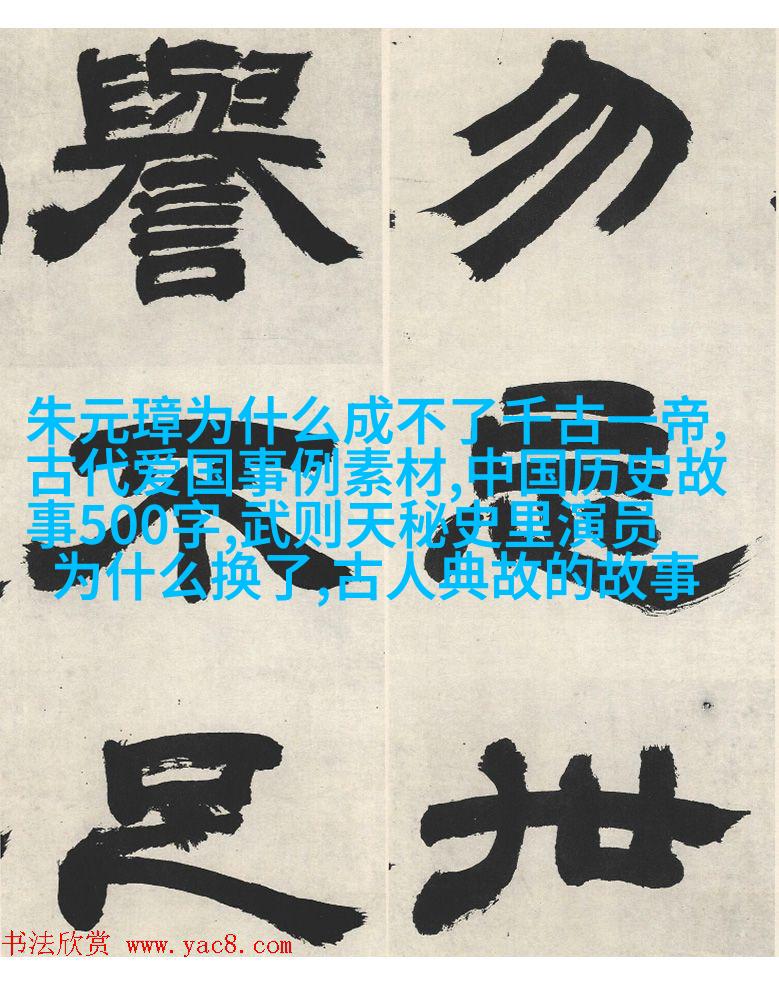 勿
世
譽
不
足
朱元璋为什么成不了千古一帝,
古代爱国事例素材,中国历史故
事500字,武则天秘史里演员
为什么换了,古人典故的故事
书法欣赏 www.yac8.com